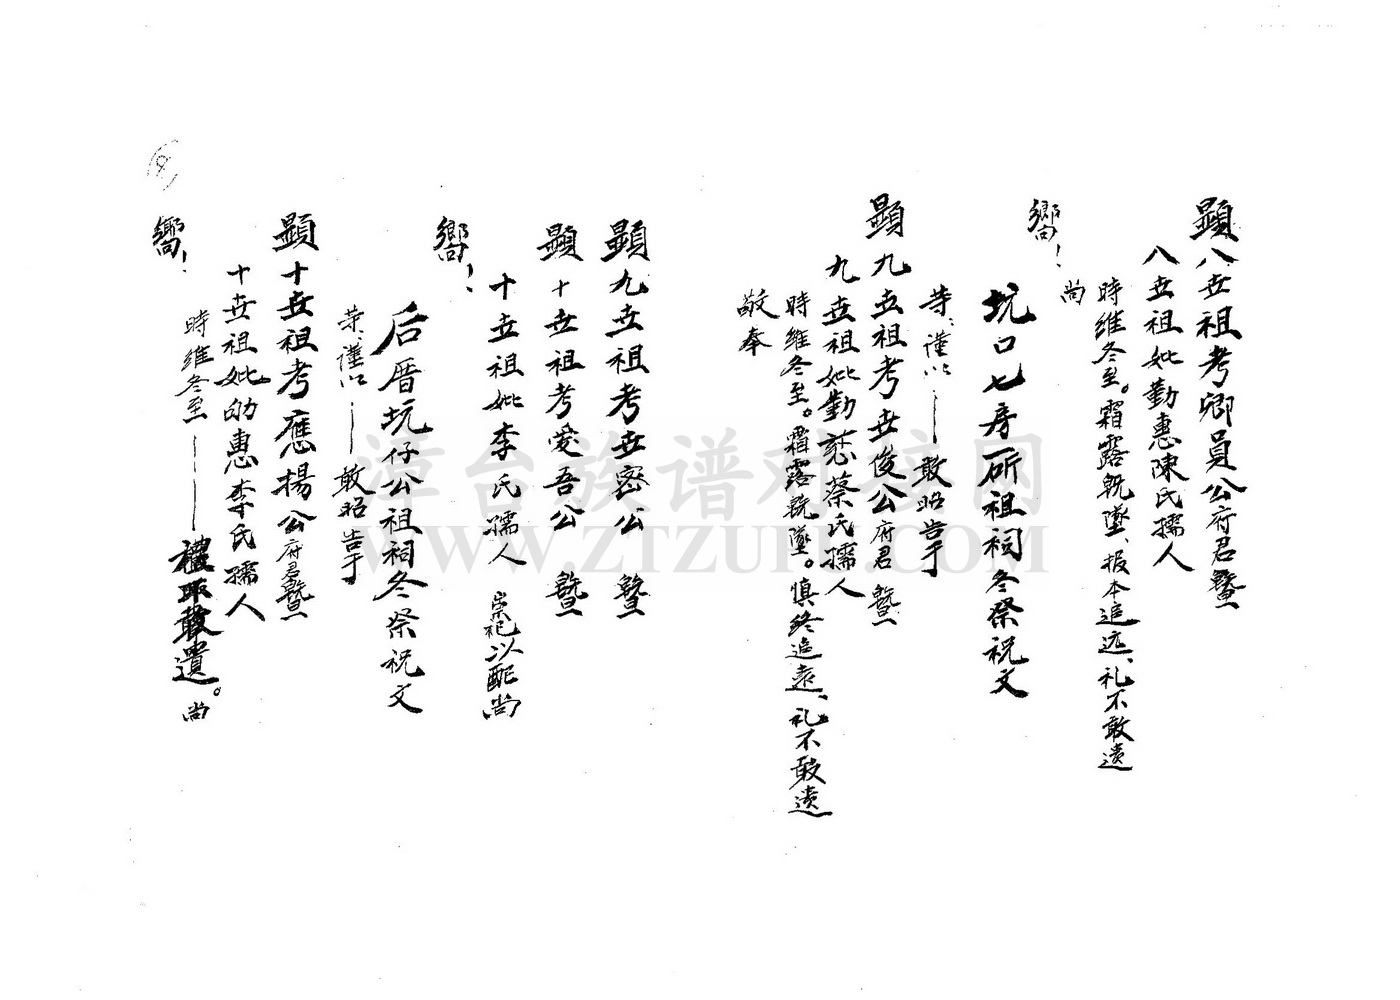 顯八世祖考卿員公府君暨
八世祖妣勤惠陳氏孺人
時維冬至。霜露既墜、报本追远、礼不敢遗
尚
嚮！
坑口七房斫祖祠冬祭祝文
等、谨以——敢昭告于
顯九世祖考世俊公府君暨
九世祖妣勤慈蔡氏孺人
時維冬至。霜露既墜。慎终追遠、礼不敢遗
敬奉
顯九世祖考世密公暨
顯十世祖考愛吾公暨
十世祖妣李氏孺人崇祀以配尚
嚮！
后厝坑仔公祖祠冬祭祝文
等、谨以——敢昭告于
顯十世祖考應揚公府君暨
十世祖妣的惠李氏孺人
時維冬至———禮不敢遺。尚
嚮！
漳台族谱对接网
WWW.ZTZUPU.COM